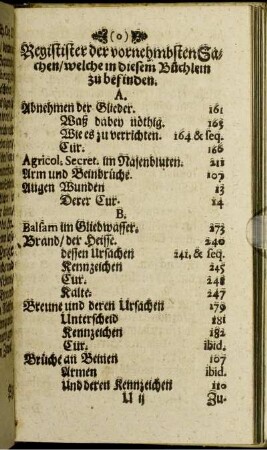 (o)
Registister der vornehmbsten Sa-
chen/welche in diesem Büchlein
zu befinden.
A.
Abnehmen der Glieder. 161
Waß dabey nöthig. 163
Wie es zu verrichten. 164 & seq.
Cur. 166
Agricol. Secret. im Nasenbluten. 211
Arm und Beinbrüche. 107
Augen Wunden 13
Derer Cur. 14
B.
Balsam im Gliedwasser. 273
Brand/der Heisse. 240
dessen Ursachen 241. & seq.
Kennzeichen 245
Cur. 248
Kalte. 247
Breune und deren Ursachen 179
Unterscheid 181
Kennzeichen 182
Cur. ibid.
Brüche an Beinen 107
Armen ibid.
und deren Kennzeichen 110
U ij Zu-